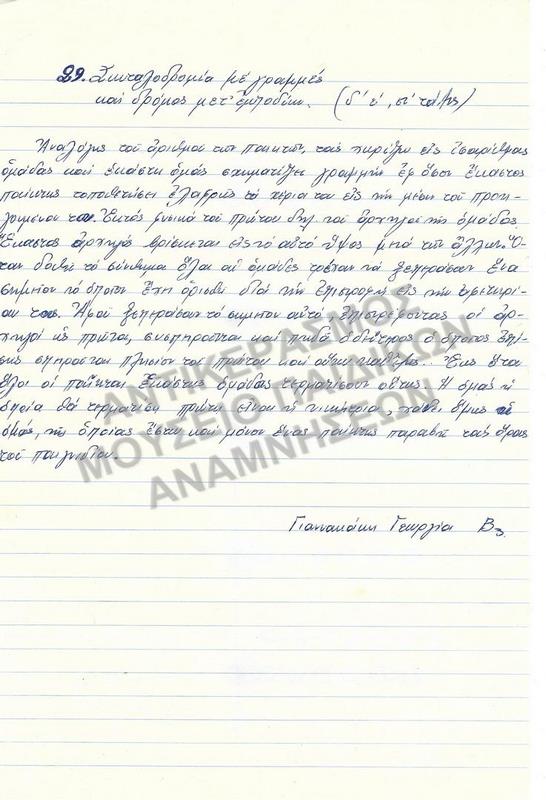 29. Σκυταλοδρομία μέ γραμμές
καί δρόμος μετ' ἐμποδίων. (δ' ε', στ' τάξις)
Ἀναλόγως τοῦ ἀριθμοῦ τῶν παικτῶν, τούς χωρίζω εἰς ἰσαρίθμους
ὁμάδας καί ἑκάστη ὁμάς σχηματίζει γραμμήν ἐφ' ὅσον ἕκαστος
παίκτης τοποθετήσει ἐλαφρῶς τά χέρια του εἰς τήν μέσην τοῦ προη-
γουμένου του. Ἐκτός φυσικά τοῦ πρώτου δηλ. τοῦ ἀρχηγοῦ τῆς ὁμάδος.
Ἕκαστος ἀρχηγός βρίσκεται εἰς τό αὐτό ὕψος μετά τῶν ἄλλων. Ὅ-
ταν δοθῇ τό σύνθημα ὅλαι αἱ ὁμάδες τρέχουν νά ξεπεράσουν ἕνα
σημεῖον τό ὁποῖον ἔχει ὁρισθῆ διά τήν ἐπιστροφήν εἰς τήν ἀφετηρί-
αν των. Ἀφοῦ ξεπεράσουν τό σημεῖον αὐτό, ἐπιστρέφοντας οἱ ἀρ-
χηγοί ὡς πρῶτοι, καί πηδᾶ ὁ δεύτερος ὁ ὁποῖος ἐπί-
σης πλησίον τοῦ πρώτου καί οὕτω καθεξῆς. Ἕως ὅτου
ὅλοι οἱ παῖκται ἑκάστης ὁμάδας τερματίσουν οὕτως. Ἡ ὁμάς ἡ
ὁποία θά τερματίσῃ πρώτη εἶναι ἡ νικήτρια, χάνει ὅμως ἡ
ὁμάς, τῆς ὁποίας ἔστω καί μόνον ἕνας παίκτης παραβῇ τούς ὅρους
τοῦ παιγνιδίου.
Γιαννακάκη Γεωργία Β3
ΑΝΤΙΚΕΡΑΣΜΟΣ
ΜΟΥΣΕΙΟ ΠΑΙΔΙΚΩΝ
ΑΝΑΜΝΗΣΕΩΝ